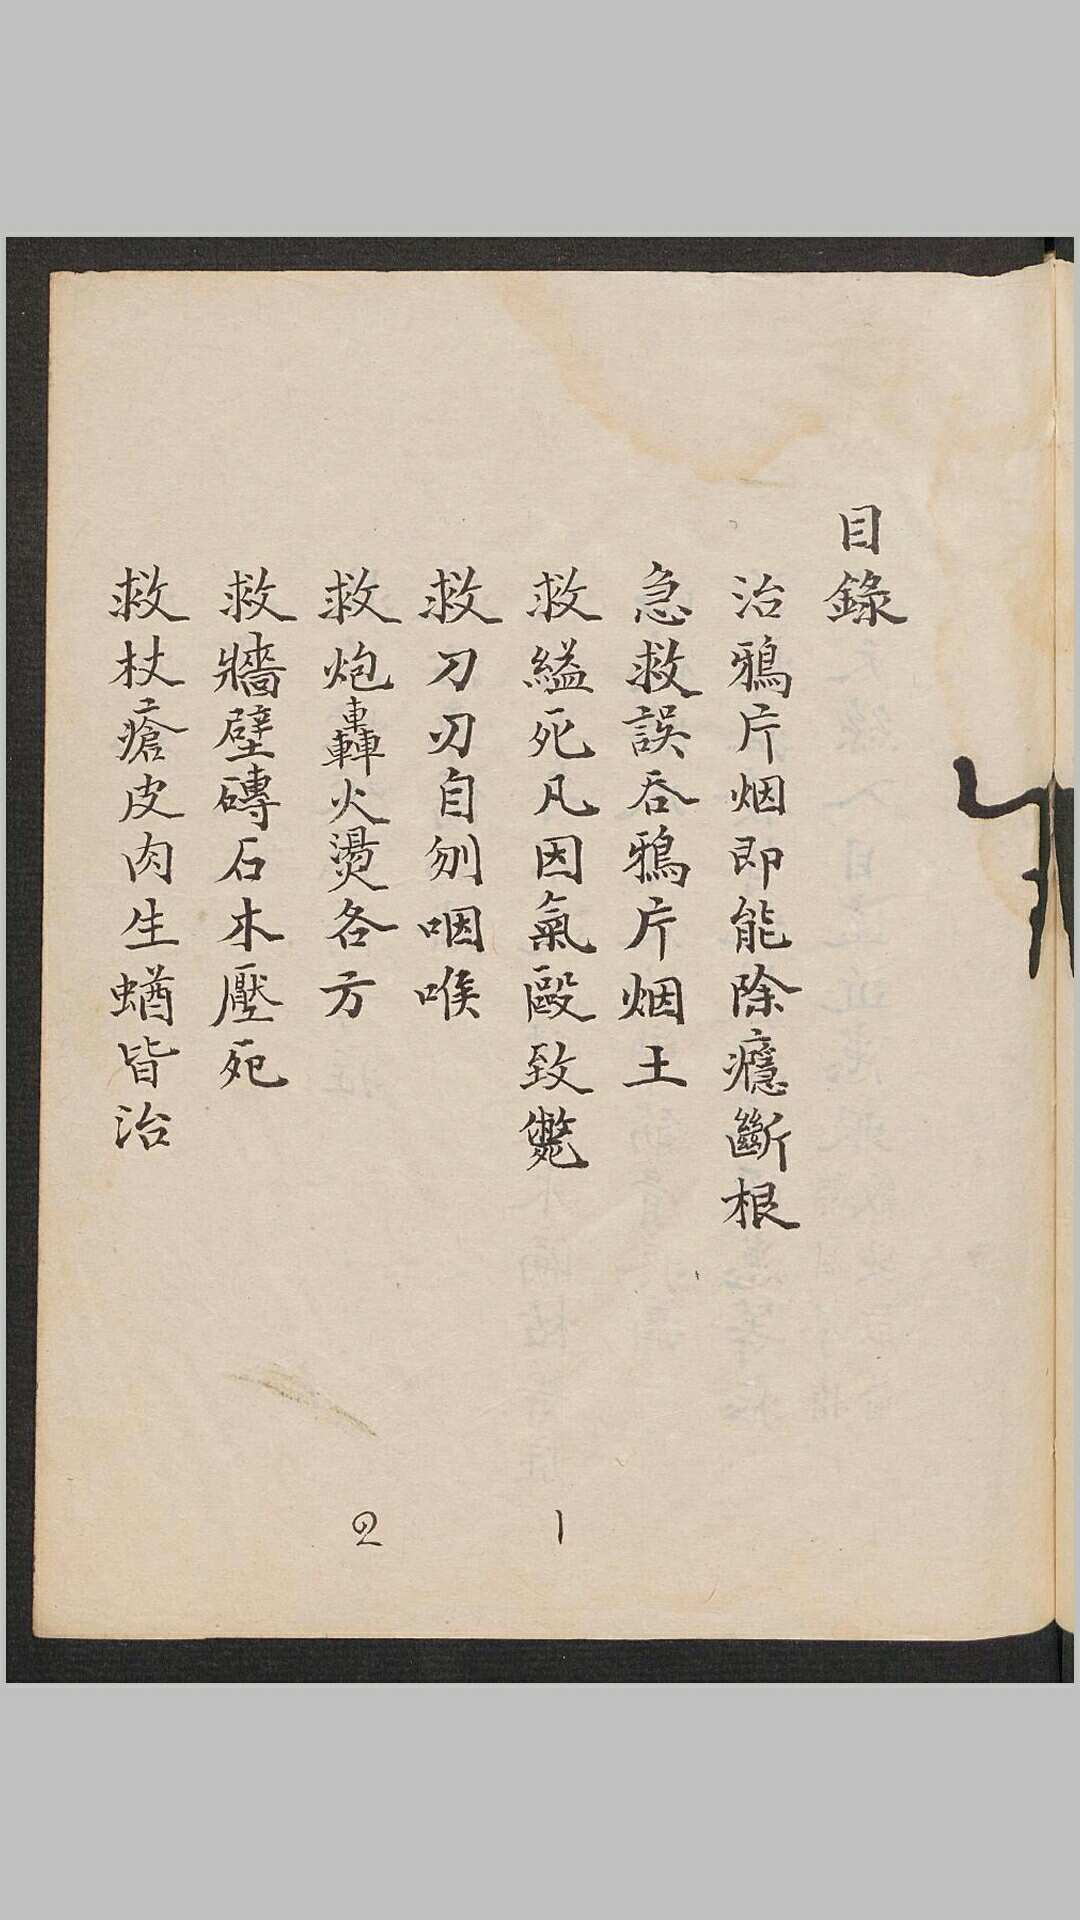 目錄
治鴉片烟即能除癮斷根
急救誤吞鴉片烟土
救縊死凡因氣毆致斃
救刀刃自刎咽喉
救炮轟火燙各方
救牆壁磚石木壓死
救杖瘡皮肉生蝤皆治
1
2